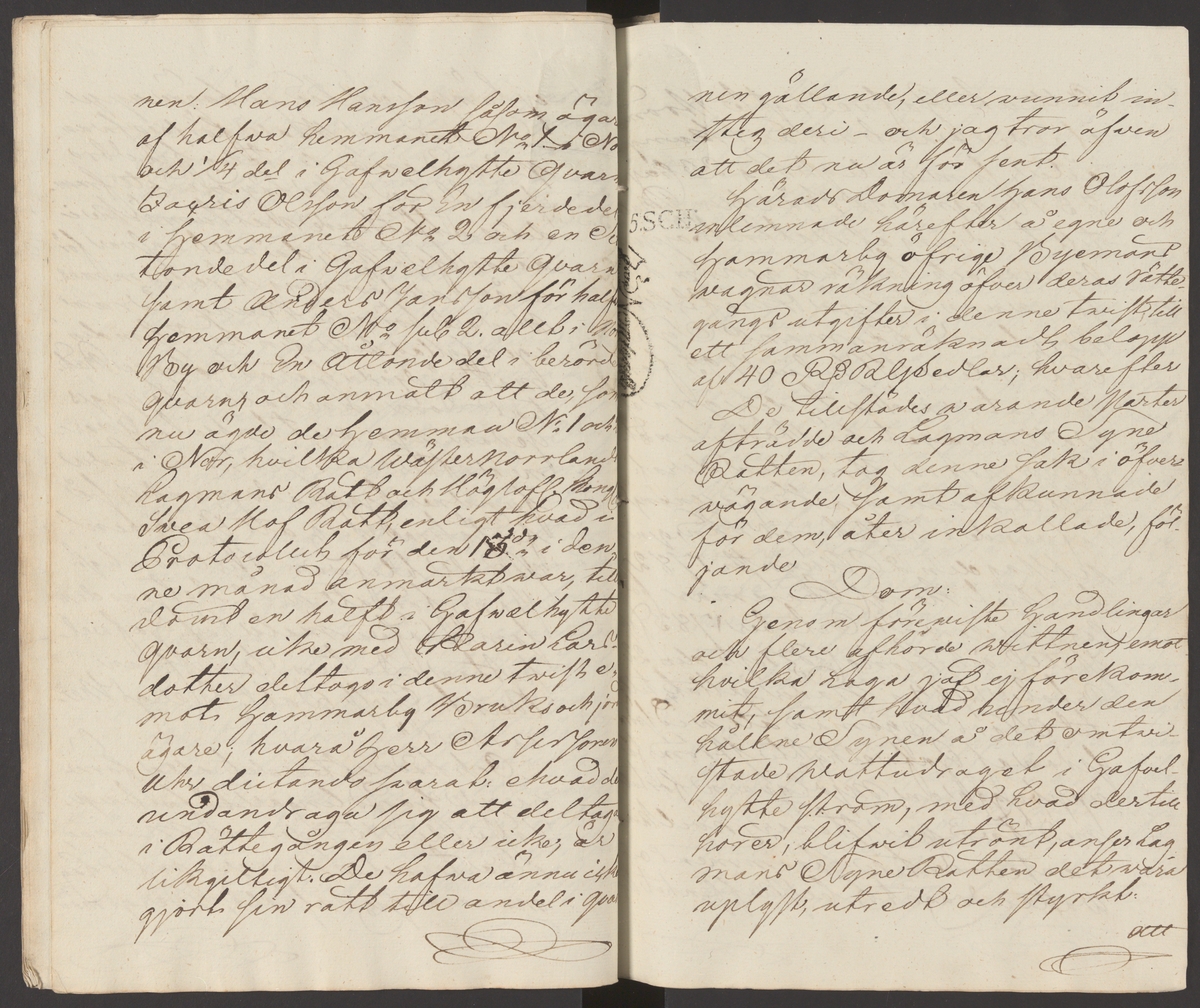 nen: Hans Hansson såsom ägar
af halfwa hemmanet No 1 i No
och 1/4 del i Gafwelhytte Qvarn
Olsson för En fjerdedel
i hemmanet No 2 och en
tondedel i Gafwelhytte Qvarn
samt Anders Jansson för half
hemmanet No sub 2. allt i
By och En Åttondedel i berörd
qvarn, och anmält att de, som
nu ägde de hemman No 1 och
i Nor, hvilka Wäster Norrlands
Lagmans Rätt och Högloft. Kongl
Svea Hof Rätt, enligt hvad i
Protocollet för den 13de i den
ne månad anmärkt war, till
dömt en hälft i Gafwelhytte
qvarn, icke med Karin Lars-
dotter deltogo i denne twist e-
mot Hammarby Bruks och jord
ägare; hvarå Herr Assessoren
Uhr dictando svarat: ehvad de
undandraga sig att deltaga
i Rättegången eller icke, är
likgiltigt. De hafwa ännu icke
gjort sin rätt till andel i qvar
nen gällande, eller wunnit in-
steg deri – och jag tror äfven
att det nu är för sent.
Härads Domaren Hans Olofsson
inlemnade härefter å egne och
Hammarby öfrige Byemäns
vagnar räkning öfver deras rätte-
gångs utgifter i denne twist, till
ett sammanräknadt belopp
af 40 RD RGSedlar; hvarefter
De tillstädes warande Parter
afträdde och Lagmans Syne
Rätten, tog denne sak i öfver-
vägande, samt afkunnade
för dem, åter inkallade, föl-
jande
Dom:
Genom företediste handlingar
och flere afhörde wittnen, emot
hvilka laga jäf ej förekom-
mit, samt hvad under den
hållne Synen å det omtwi-
stade wattudraget i Gafvel-
hytte ström, med hvad dertill
hörer, blifwit utrönt, anser Lag
mans Syne Rätten det wara
uplyst, utredt och styrkt:
att